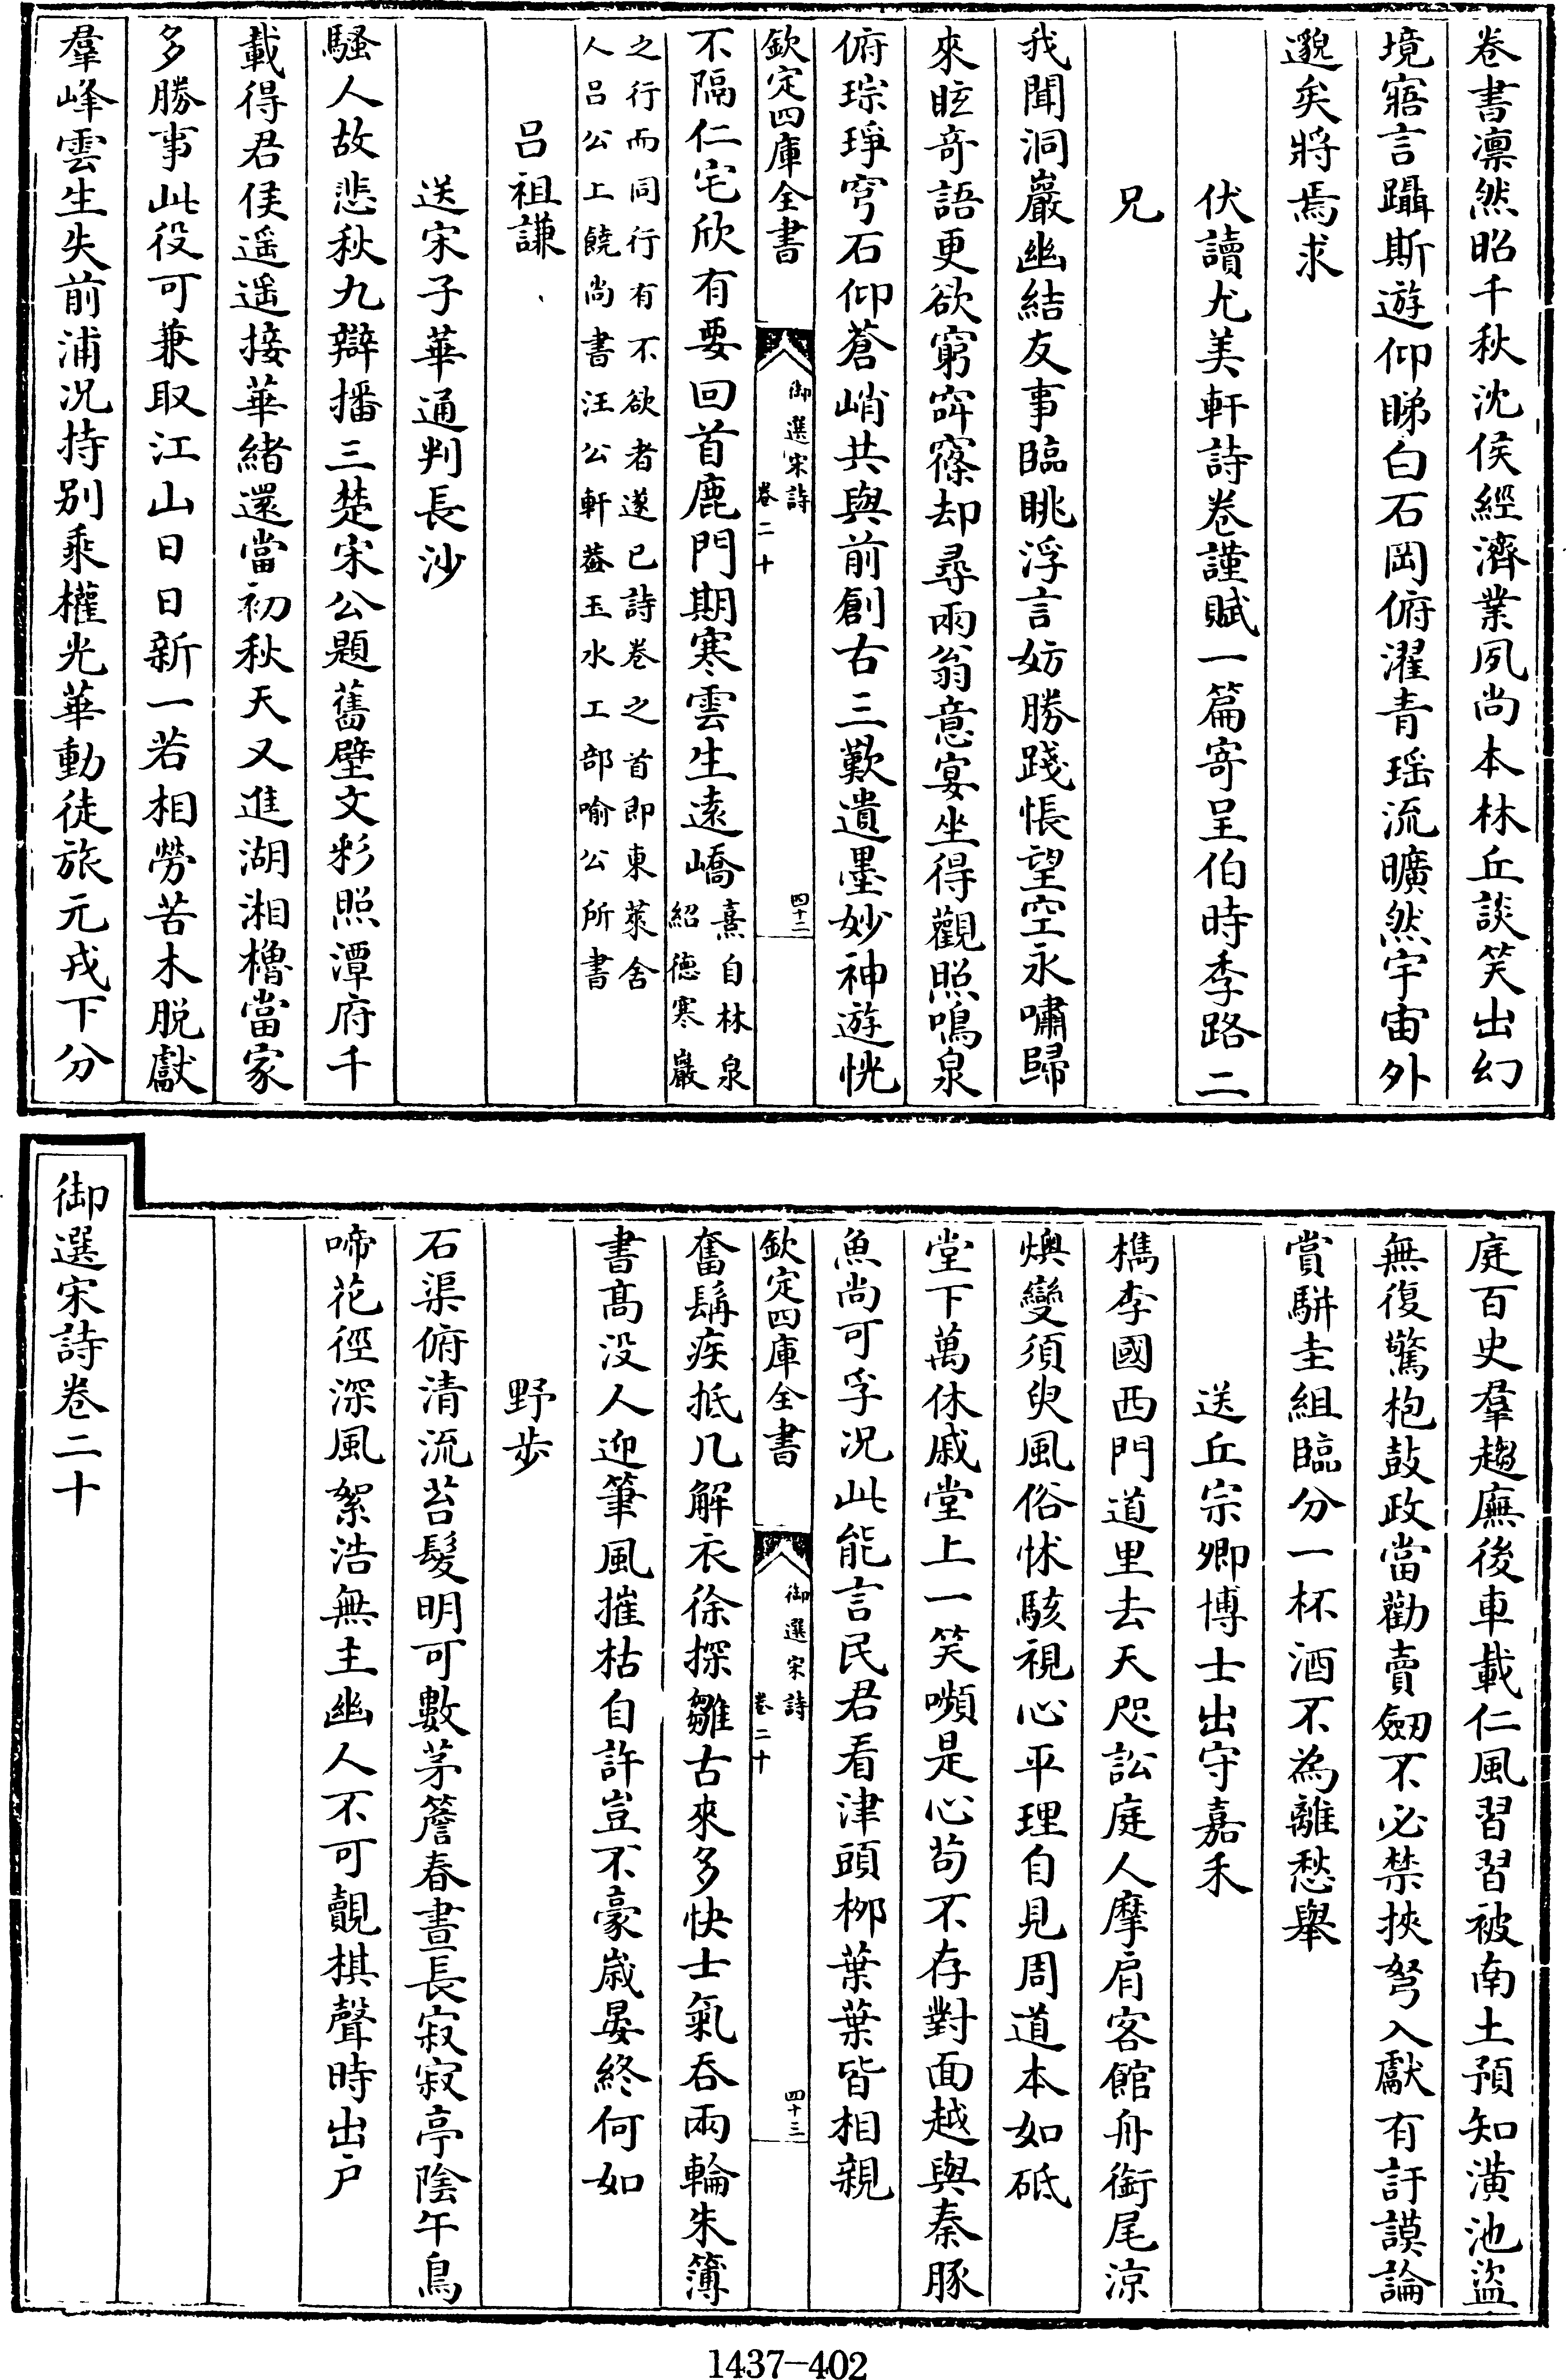 卷書凛然昭千秋沈侯經濟業夙尚本林丘談笑出幻
境寤言躡斯遊仰睇白石岡俯濯青瑶流曠然宇宙外
邈矣將焉求
伏讀尤美軒詩卷謹賦一篇寄呈伯時季路二
兄
我聞洞巖幽結友事臨眺浮言妨勝踐悵望空永嘯歸
來眩奇語更欲窮窙窱却尋兩翁意宴坐得觀照鳴泉
俯琮琤穹石仰蒼峭共與前創古三歎遺墨妙神遊恍
欽定四庫全書
御選宋詩
卷二十
四十二
不隔仁宅欣有要回首鹿門期寒雲生遠嶠
熹自林泉
紹德寒巖
之行而同行有不欲者遂已詩卷之首即東萊舍
人吕公上饒尚書汪公軒葢玉水工部喻公所書
吕祖謙
送宋子華通判長沙
騷人故悲秋九辯播三楚宋公題舊壁文彩照潭府千
載得君侯遥遥接華緒還當初秋天又進湖湘櫓當家
多勝事此役可兼取江山日日新一若相勞苦木脱獻
羣峰雲生失前浦况持别乘權光華動徒旅元戎下分
庭百史羣趨廡後車載仁風習習被南土預知潢池盜
無復驚枹鼓政當勸賣劒不必禁挾弩入獻有訏謨論
賞駢圭組臨分一杯酒不為離愁舉
送丘宗卿博士出守嘉禾
檇李國西門道里去天咫訟庭人摩肩客館舟銜尾凉
燠變須臾風俗怵駭視心平理自見周道本如砥
堂下萬休戚堂上一笑嚬是心苟不存對面越與秦豚
魚尚可孚况此能言民君看津頭栁葉葉皆相親
欽定四庫全書
御選宋詩
卷二十
四十三
奮髯疾抵几解衣徐探雛古來多快士氣吞兩輪朱簿
書髙没人迎筆風摧枯自許豈不豪嵗晏終何如
野步
石渠俯清流苔髮明可數茅簷春晝長寂寂亭陰午鳥
啼花徑深風絮浩無主幽人不可覿棋聲時出户
御選宋詩卷二十
1437-402